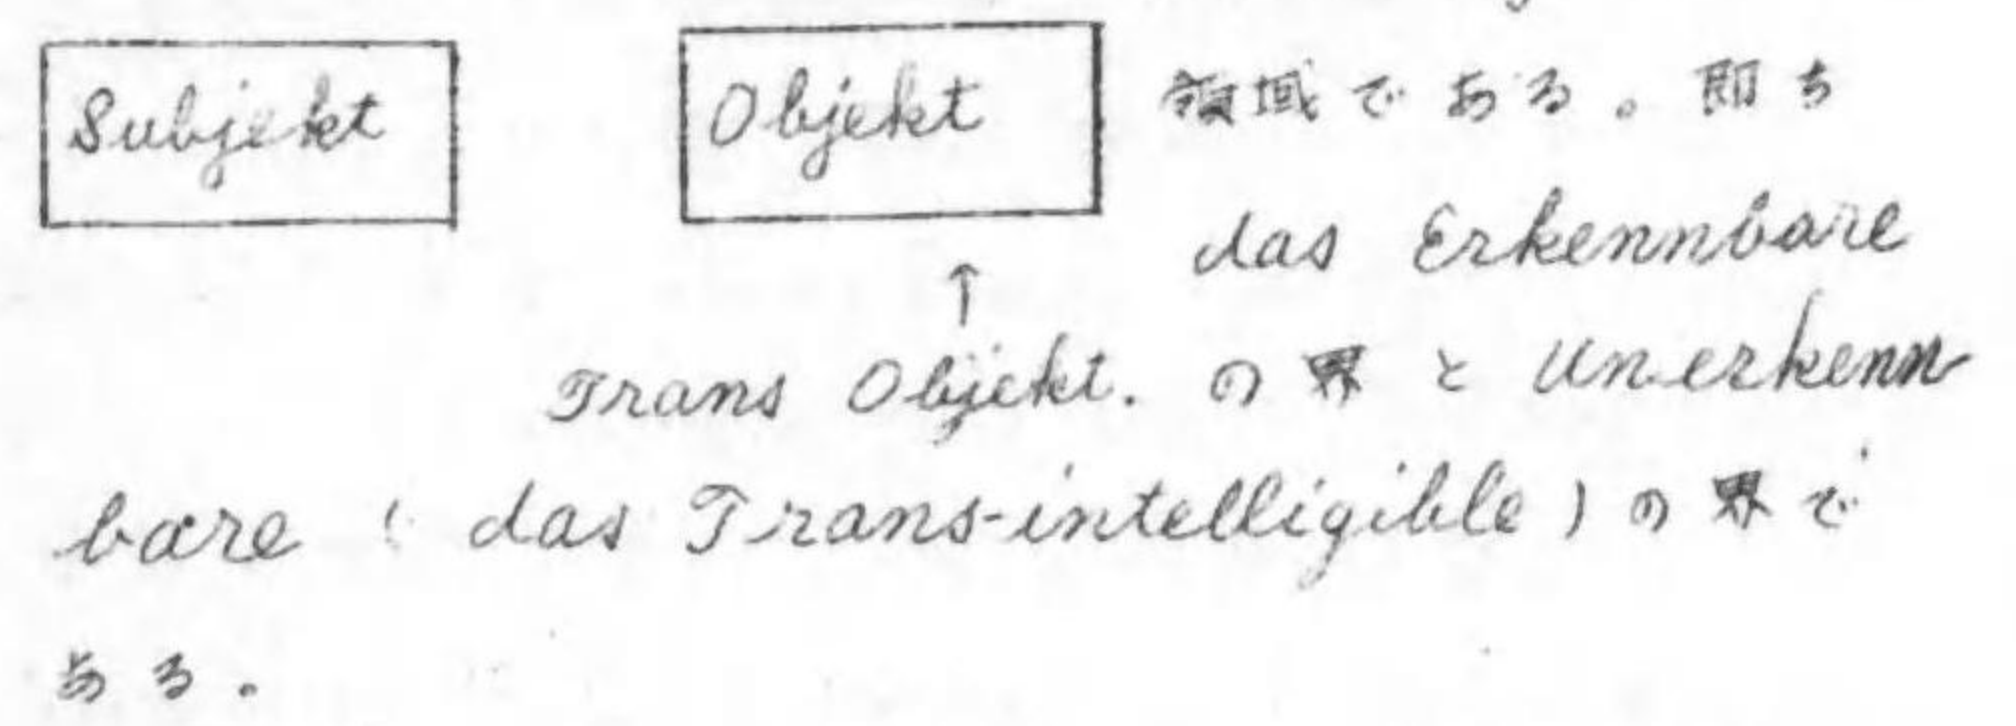 Subjekt Objekt 領域である。即ち
das Erkennbare
↑
Trans Objekt. の界と Unerkenn
bare (das Trans-intelligible)の界で
ある。